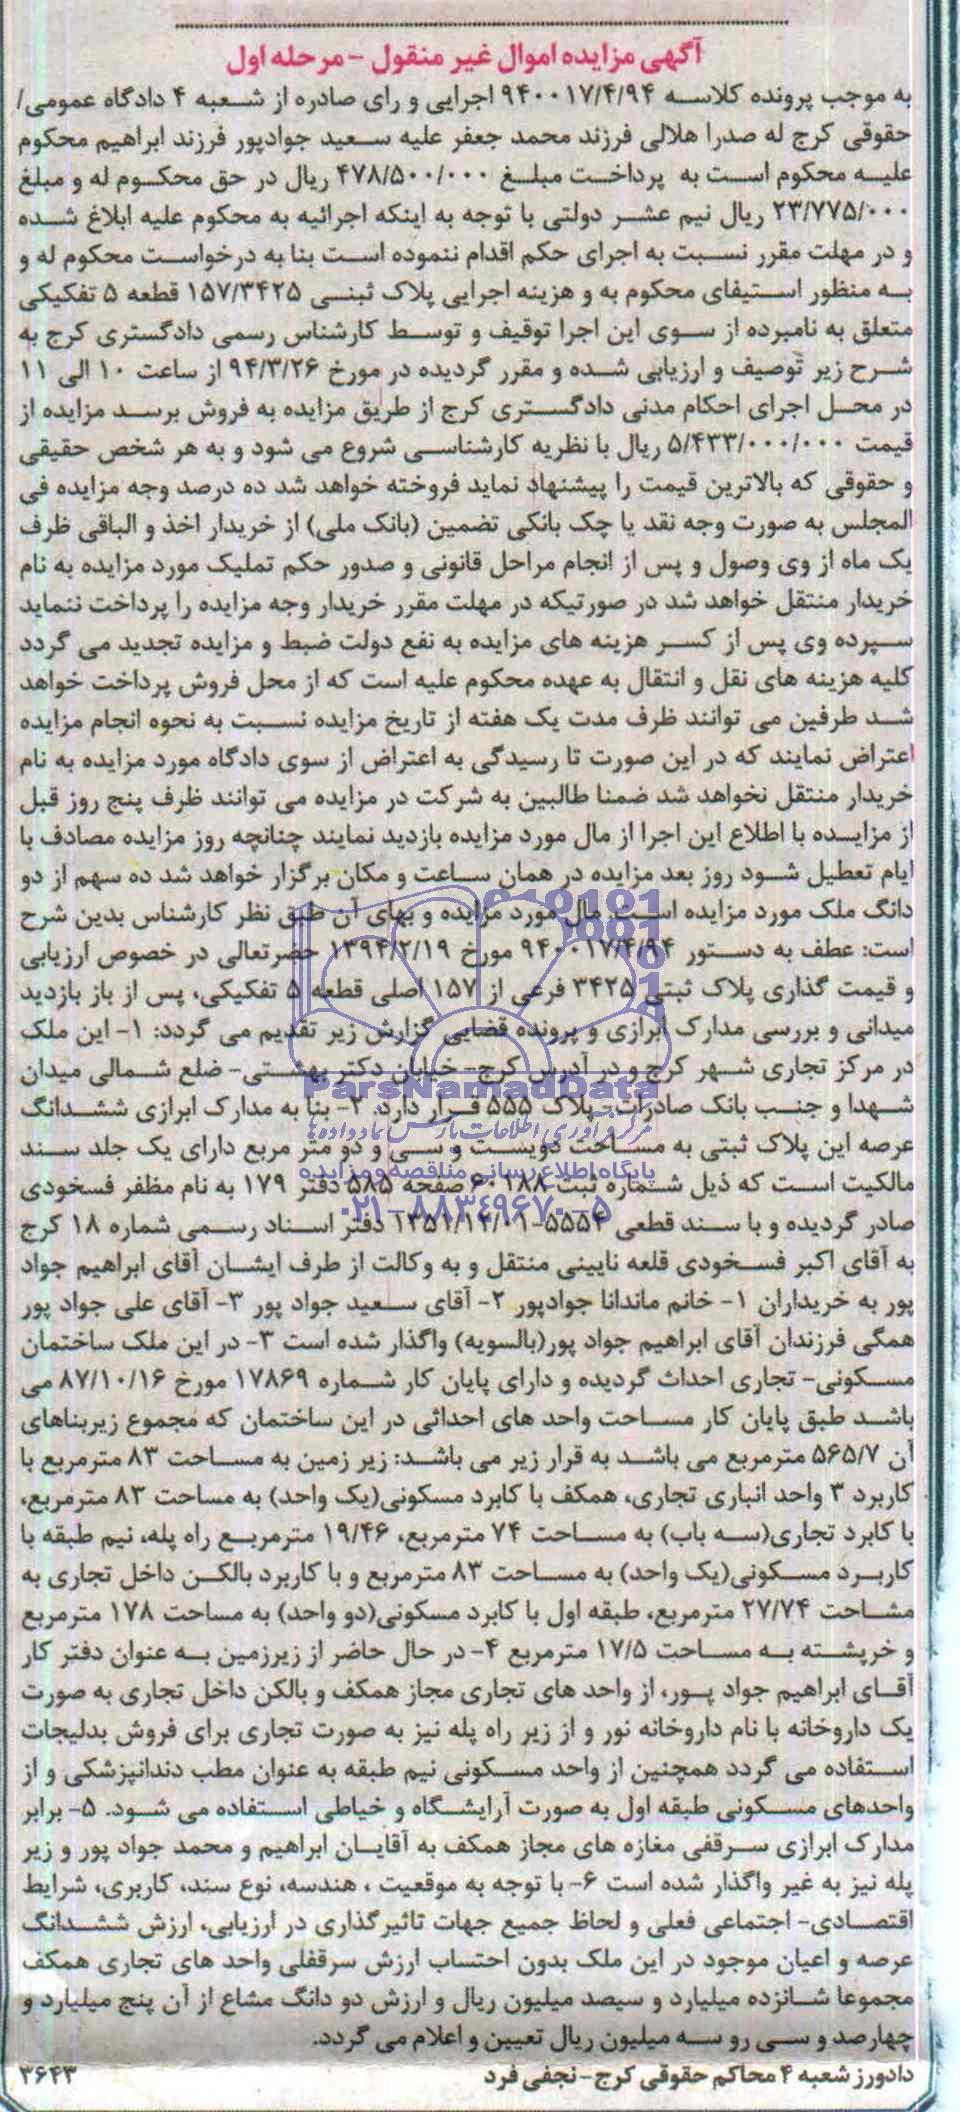 آگهی مزایده اموال غیر منقول - مرحله اول
به موجب پرونده کلاسه ۹۴۰۰۱۷/۴/۹۴ اجرایی و رای صادره از شعبه ۴ دادگاه عمومی/
حقوقی کرج له صدرا هلالی فرزند محمد جعفر علیه سعید جوادپور فرزند ابراهیم محکوم
علیه محکوم است به پرداخت مبلغ ۴۷۸/۵۰۰/۰۰۰ ریال در حق محکوم له و مبلغ
۲۳/۷۷۵/۰۰۰ ریال نیم عشر دولتی با توجه به اینکه اجرائیه به محکوم علیه ابلاغ شده
و در مهلت مقرر نسبت به اجرای حکم اقدام ننموده است بنا به درخواست محکوم له و
به منظور استیفای محکوم به و هزینه اجرایی پلاک ثبنی ۱۵۷/۳۴۲۵ قطعه ۵ تفکیکی
متعلق به نامبرده از سوی این اجرا توقیف و توسط کارشناس رسمی دادگستری کرج به
شرح زیر توصیف و ارزیابی شده و مقرر گردیده در مورخ ۹۴/۳/۲۶ از ساعت ۱۰ الی ۱۱
در محل اجرای احکام مدنی دادگستری کرج از طریق مزایده به فروش برسد مزایده از
قیمت ۵/۴۳۳/۰۰۰/۰۰۰ ریال با نظریه کارشناسی شروع می شود و به هر شخص حقیقی
و حقوقی که بالاترین قیمت را پیشنهاد نماید فروخته خواهد شد ده درصد وجه مزایده فی
المجلس به صورت وجه نقد یا چک بانکی تضمین (بانک ملی) از خریدار اخذ و الباقی ظرف
یک ماه از وی وصول و پس از انجام مراحل قانونی و صدور حکم تملیک مورد مزایده به نام
خریدار منتقل خواهد شد در صورتیکه در مهلت مقرر خریدار وجه مزایده را پرداخت ننماید
سپرده وی پس از کسر هزینه های مزایده به نفع دولت ضبط و مزایده تجدید می گردد
کلیه هزینه های نقل و انتقال به عهده محکوم علیه است که از محل فروش پرداخت خواهد
شد طرفین می توانند ظرف مدت یک هفته از تاریخ مزایده نسبت به نحوه انجام مزایده
اعتراض نمایند که در این صورت تا رسیدگی به اعتراض از سوی دادگاه مورد مزایده به نام
خریدار منتقل نخواهد شد ضمنا طالبین به شرکت در مزایده می توانند ظرف پنج روز قبل
از مزایده با اطلاع این اجرا از مال مورد مزایده بازدید نمایند چنانچه روز مزایده مصادف با
ایام تعطیل شود روز بعد مزایده در همان ساعت و مکان برگزار خواهد شد ده سهم از دو
دانگ ملک مورد مزایده است. مال مورد مزایده و بهای آن طبق نظر کارشناس بدین شرح
است: عطف به دستور ۹۴۰۰۱۷/۴/۹۴ مورخ ۱۳۹۴/۲/۱۹ حضرتعالی در خصوص ارزیابی
و قیمت گذاری پلاک ثبتی ۳۴۲۵ فرعی از ۱۵۷ اصلی قطعه ۵ تفکیکی، پس از باز بازدید
میدانی و بررسی مدارک ابرازی و پرونده قضایی گزارش زیر تقدیم می گردد: ۱- این ملک
در مرکز تجاری شهر کرج و در آدرس کرج- خیابان دکتر بهشتی- ضلع شمالی میدان
ParsNamadData
شهدا و جنب بانک صادرات- پلاک ۵۵۵ قرار دارد. ۲- بنا به مدارک ابرازی ششدانگ
مرکز فرآوری اطلاعات پارس نماد داده‌ها
عرصه این پلاک ثبتی به مساحت دویست و سی و دو متر مربع دارای یک جلد سند
پایگاه اطلاع رسانی مناقصه و مزایده
مالکیت است که ذیل شماره ثبت ۶۰۱۸۸ صفحه ۵۸۵ دفتر ۱۷۹ به نام مظفر فسخودی
۰۲۱-۸۸۳۴۹۶۷۰-۵
صادر گردیده و با سند قطعی ۵۵۵۴-۱۳۵۱/۱۲/۰۱ دفتر اسناد رسمی شماره ۱۸ کرج
به آقای اکبر فسخودی قلعه نایینی منتقل و به وکالت از طرف ایشان آقای ابراهیم جواد
پور به خریداران ۱- خانم ماندانا جوادپور ۲- آقای سعید جواد پور ۳- آقای علی جواد پور
همگی فرزندان آقای ابراهیم جواد پور(بالسویه) واگذار شده است ۳- در این ملک ساختمان
مسکونی- تجاری احداث گردیده و دارای پایان کار شماره ۱۷۸۶۹ مورخ ۸۷/۱۰/۱۶ می
باشد طبق پایان کار مساحت واحد های احداثی در این ساختمان که مجموع زیربناهای
آن ۵۶۵/۷ مترمربع می باشد به قرار زیر می باشد: زیر زمین به مساحت ۸۳ مترمربع با
کاربرد ۳ واحد انباری تجاری، همکف با کابرد مسکونی(یک واحد) به مساحت ۸۳ مترمربع،
با کابرد تجاری(سه باب) به مساحت ۷۴ مترمربع، ۱۹/۴۶ مترمربع راه پله، نیم طبقه با
کاربرد مسکونی(یک واحد) به مساحت ۸۳ مترمربع و با کاربرد بالکن داخل تجاری به
مشاحت ۲۷/۷۴ مترمربع، طبقه اول با کابرد مسکونی(دو واحد) به مساحت ۱۷۸ مترمربع
و خرپشته به مساحت ۱۷/۵ مترمربع ۴- در حال حاضر از زیرزمین به عنوان دفتر کار
آقای ابراهیم جواد پور، از واحد های تجاری مجاز همکف و بالکن داخل تجاری به صورت
یک داروخانه با نام داروخانه نور و از زیر راه پله نیز به صورت تجاری برای فروش بدلیجات
استفاده می گردد همچنین از واحد مسکونی نیم طبقه به عنوان مطب دندانپزشکی و از
واحدهای مسکونی طبقه اول به صورت آرایشگاه و خیاطی استفاده می شود. ۵- برابر
مدارک ابرازی سرقفی مغازه های مجاز همکف به آقایان ابراهیم و محمد جواد پور و زیر
پله نیز به غیر واگذار شده است ۶- با توجه به موقعیت ، هندسه، نوع سند، کاربری، شرایط
اقتصادی- اجتماعی فعلی و لحاظ جمیع جهات تاثیرگذاری در ارزیابی، ارزش ششدانگ
عرصه و اعیان موجود در این ملک بدون احتساب ارزش سرقفلی واحد های تجاری همکف
مجموعا شانزده میلیارد و سیصد میلیون ریال و ارزش دو دانگ مشاع از آن پنج میلیارد و
چهارصد و سی رو سه میلیون ریال تعیین و اعلام می گردد.
دادورز شعبه ۴ محاکم حقوقی کرج- نجفی فرد
۳۶۴۳